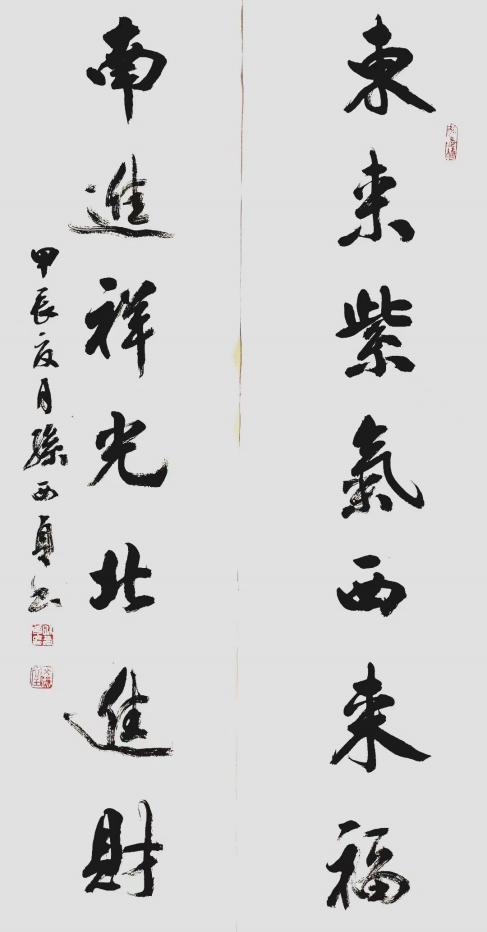 東来紫氣西来福
南進祥光北進財
甲辰夏月孫西貞书